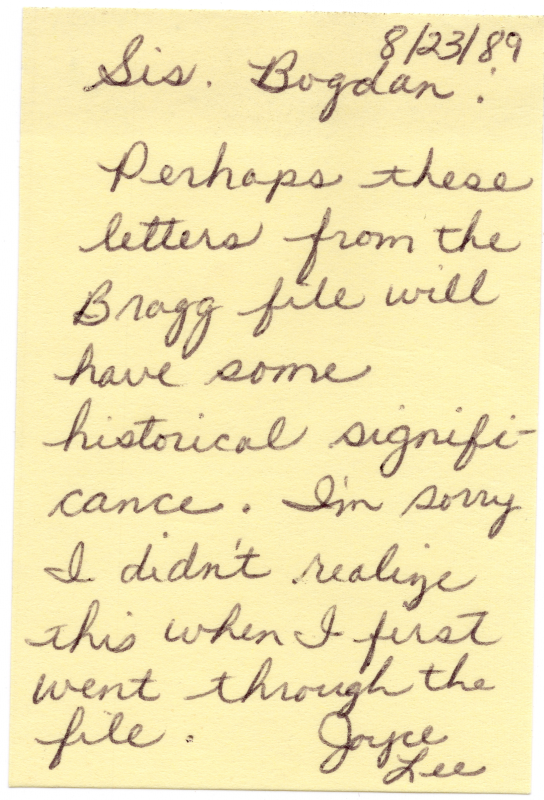 8/23/89
Sis. Bogdan:
Perhaps these
letters from the
Bragg file will
have some
historical signifi-
cance. I'm sorry
I didn't realize
this when I first
went through the
file. Joyce
Lee